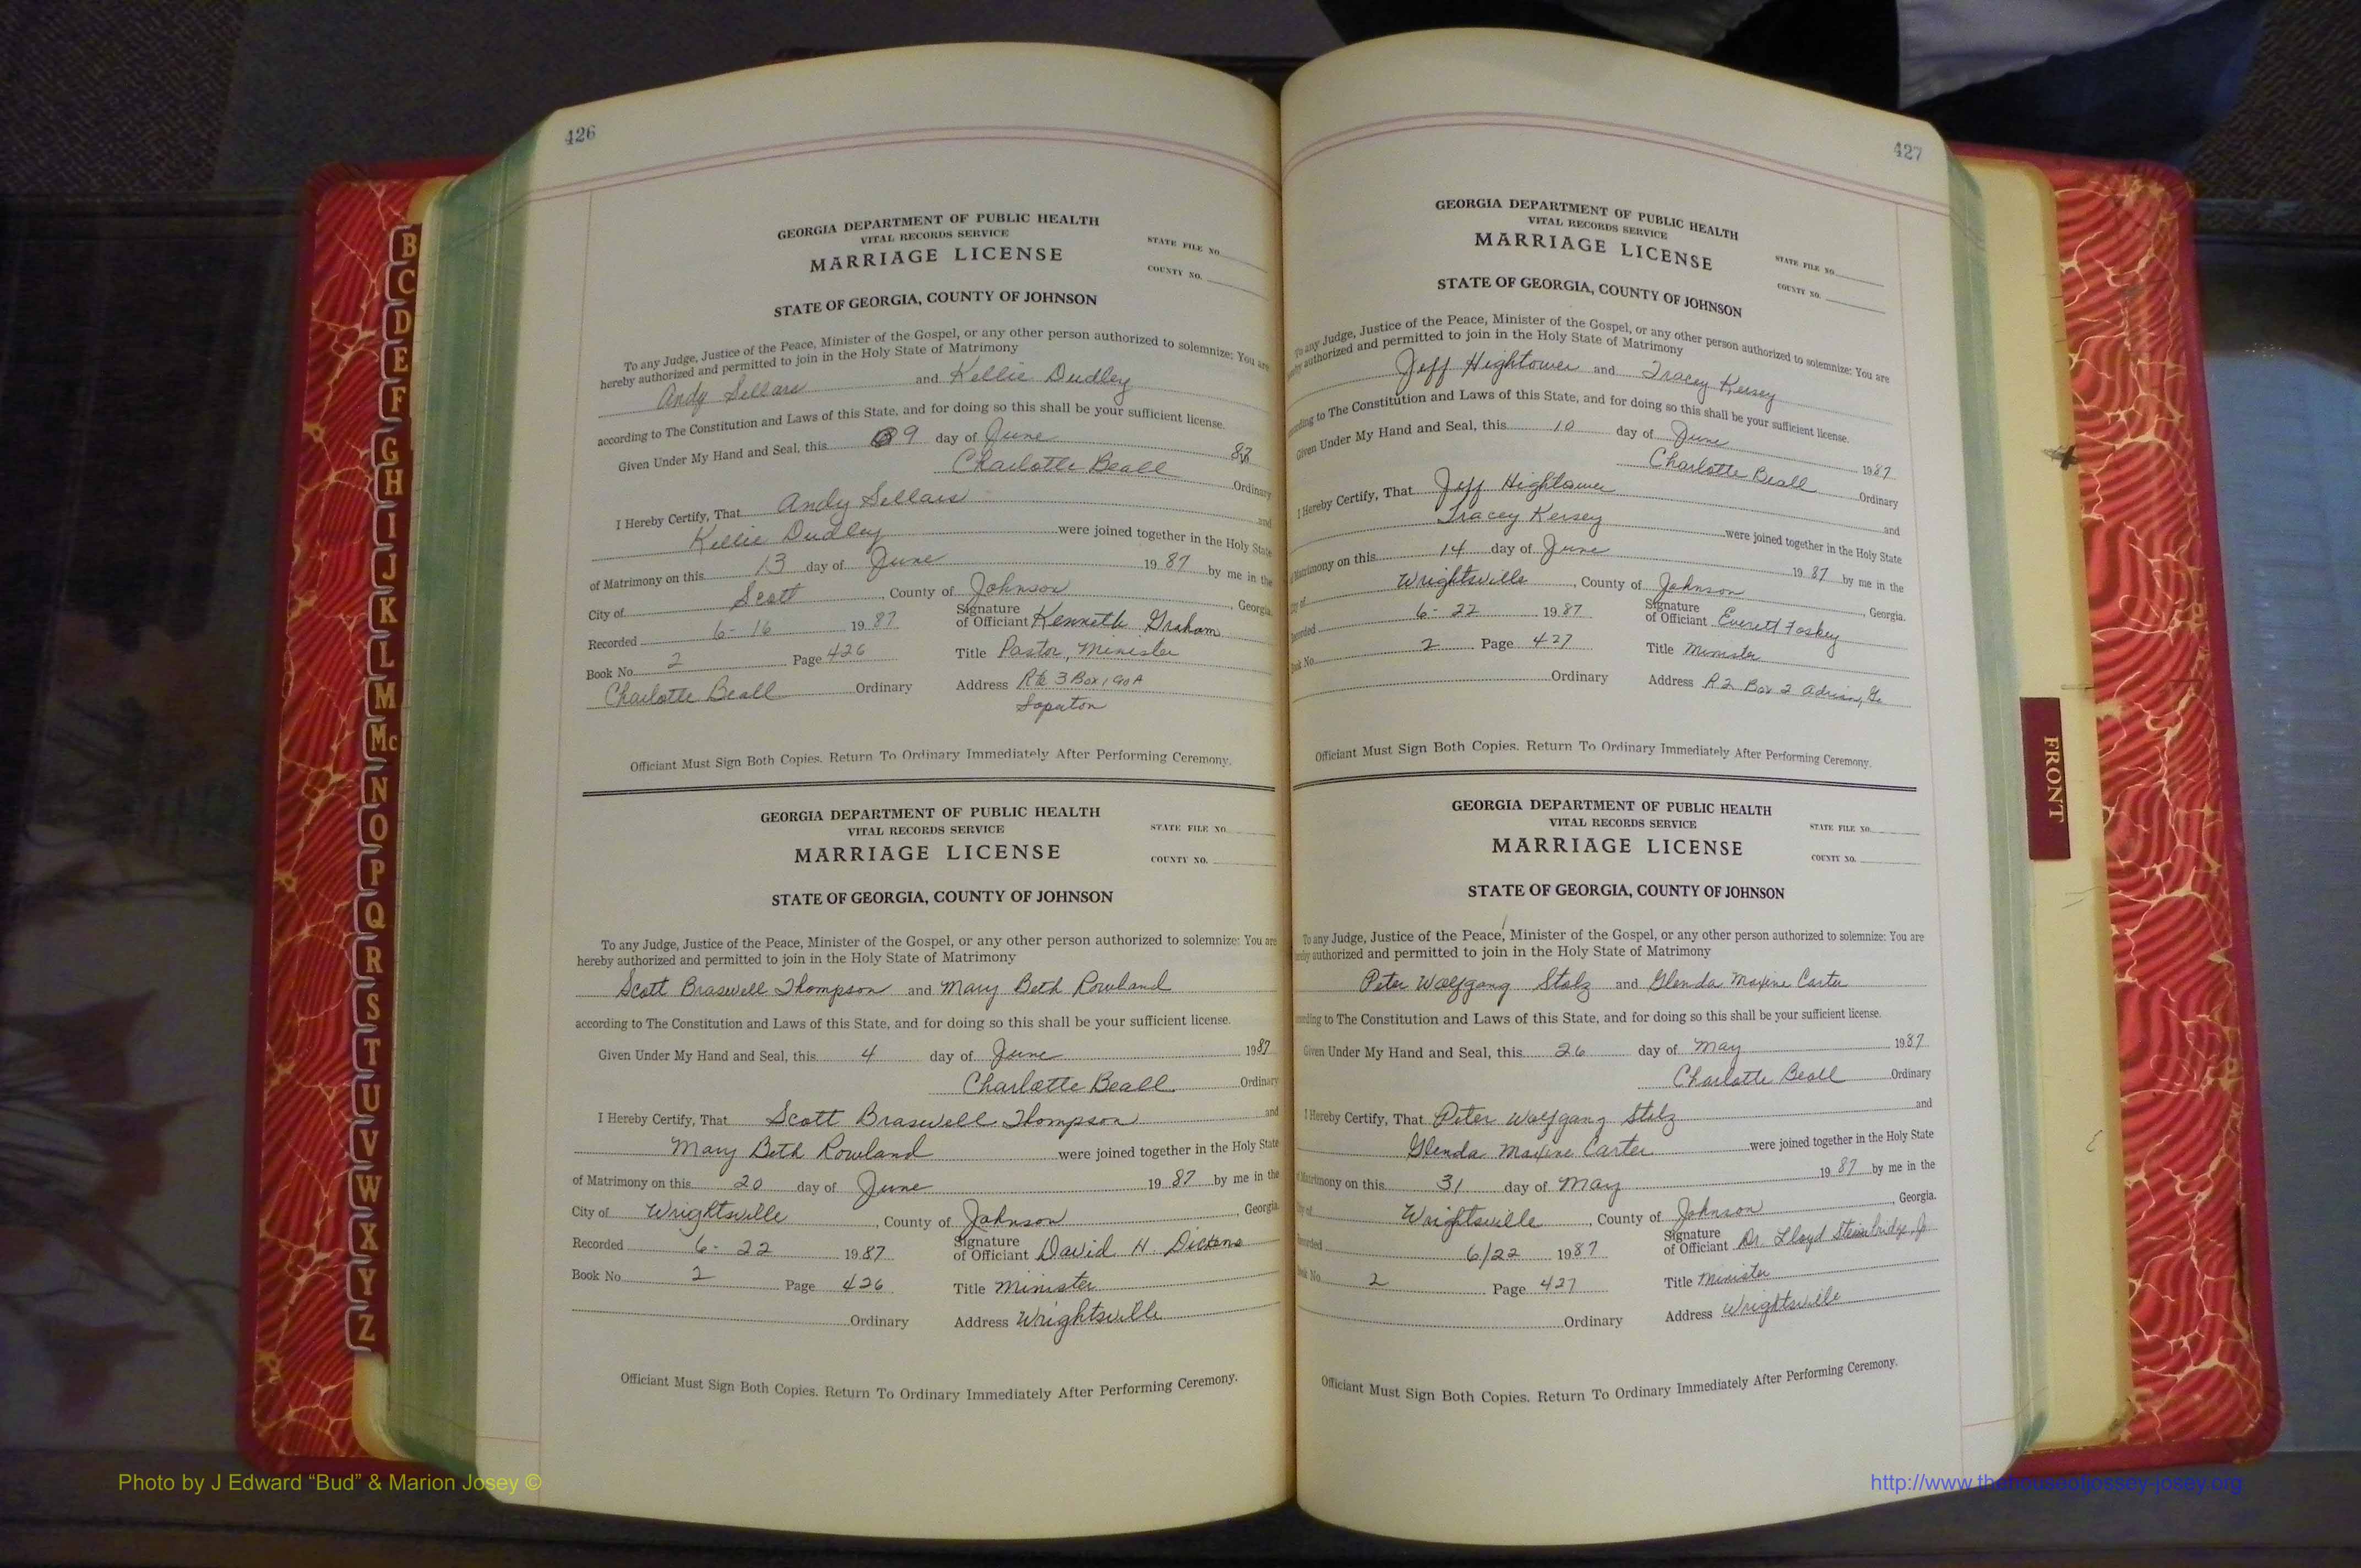 426
GEORGIA DEPARTMENT OF PUBLIC HEALTH
VITAL RECORDS SERVICE
MARRIAGE LICENSE
STATE FILE NO.
COUNTY NO.
STATE OF GEORGIA, COUNTY OF JOHNSON
To any Judge, Justice of the Peace, Minister of the Gospel, or any other person authorized to solemnize: You are
hereby authorized and permitted to join in the Holy State of Matrimony
Andy Sellars and Kellie Dudley
according to The Constitution and Laws of this State, and for doing so this shall be your sufficient license.
Given Under My Hand and Seal, this 9 day of June 87
Charlotte Beall Ordinary
I Hereby Certify, That Andy Sellars and
Kellie Dudley were joined together in the Holy State
of Matrimony on this 13 day of June 1987 by me in the
City of Scott, County of Johnson, Georgia.
Recorded 6-16 1987 Signature of Officiant Kenneth Graham
Book No. 2 Page 426 Title Pastor, Minister
Charlotte Beall Ordinary Address Rte 3 Box 190A
Soperton
Officiant Must Sign Both Copies. Return To Ordinary Immediately After Performing Ceremony.
GEORGIA DEPARTMENT OF PUBLIC HEALTH
VITAL RECORDS SERVICE
MARRIAGE LICENSE
STATE FILE NO.
COUNTY NO.
STATE OF GEORGIA, COUNTY OF JOHNSON
To any Judge, Justice of the Peace, Minister of the Gospel, or any other person authorized to solemnize: You are
hereby authorized and permitted to join in the Holy State of Matrimony
Scott Braswell Thompson and Mary Beth Rowland
according to The Constitution and Laws of this State, and for doing so this shall be your sufficient license.
Given Under My Hand and Seal, this 4 day of June 1987
Charlotte Beall Ordinary
I Hereby Certify, That Scott Braswell Thompson and
Mary Beth Rowland were joined together in the Holy State
of Matrimony on this 20 day of June 1987 by me in the
City of Wrightsville, County of Johnson, Georgia.
Recorded 6-22 1987 Signature of Officiant David H. Dickens
Book No. 2 Page 426 Title Minister
Ordinary Address Wrightsville
Officiant Must Sign Both Copies. Return To Ordinary Immediately After Performing Ceremony.
427
GEORGIA DEPARTMENT OF PUBLIC HEALTH
VITAL RECORDS SERVICE
MARRIAGE LICENSE
STATE FILE NO.
COUNTY NO.
STATE OF GEORGIA, COUNTY OF JOHNSON
To any Judge, Justice of the Peace, Minister of the Gospel, or any other person authorized to solemnize: You are
hereby authorized and permitted to join in the Holy State of Matrimony
Jeff Hightower and Tracey Kersey
according to The Constitution and Laws of this State, and for doing so this shall be your sufficient license.
Given Under My Hand and Seal, this 10 day of June 1987
Charlotte Beall Ordinary
I Hereby Certify, That Jeff Hightower and
Tracey Kersey were joined together in the Holy State
of Matrimony on this 14 day of June 1987 by me in the
City of Wrightsville, County of Johnson, Georgia.
Recorded 6-22 1987 Signature of Officiant Everett Foskey
Book No. 2 Page 427 Title Minister
Ordinary Address R2 Box 2 Adrian, Ga
Officiant Must Sign Both Copies. Return To Ordinary Immediately After Performing Ceremony.
GEORGIA DEPARTMENT OF PUBLIC HEALTH
VITAL RECORDS SERVICE
MARRIAGE LICENSE
STATE FILE NO.
COUNTY NO.
STATE OF GEORGIA, COUNTY OF JOHNSON
To any Judge, Justice of the Peace, Minister of the Gospel, or any other person authorized to solemnize: You are
hereby authorized and permitted to join in the Holy State of Matrimony
Peter Wolfgang Stolz and Glenda Maxine Carter
according to The Constitution and Laws of this State, and for doing so this shall be your sufficient license.
Given Under My Hand and Seal, this 26 day of May 1987
Charlotte Beall Ordinary
I Hereby Certify, That Peter Wolfgang Stolz and
Glenda Maxine Carter were joined together in the Holy State
of Matrimony on this 31 day of May 1987 by me in the
City of Wrightsville, County of Johnson, Georgia.
Recorded 6/22 1987 Signature of Officiant Dr. Lloyd Stembridge, Jr
Book No. 2 Page 427 Title Minister
Ordinary Address Wrightsville
Officiant Must Sign Both Copies. Return To Ordinary Immediately After Performing Ceremony.
B
C
D
E
F
G
H
I
J
K
L
M
Mc
N
O
P
Q
R
S
T
U
V
W
X
Y
Z
FRONT
Photo by J Edward “Bud” & Marion Josey ©
http://www.thehouseofjossey-josey.org